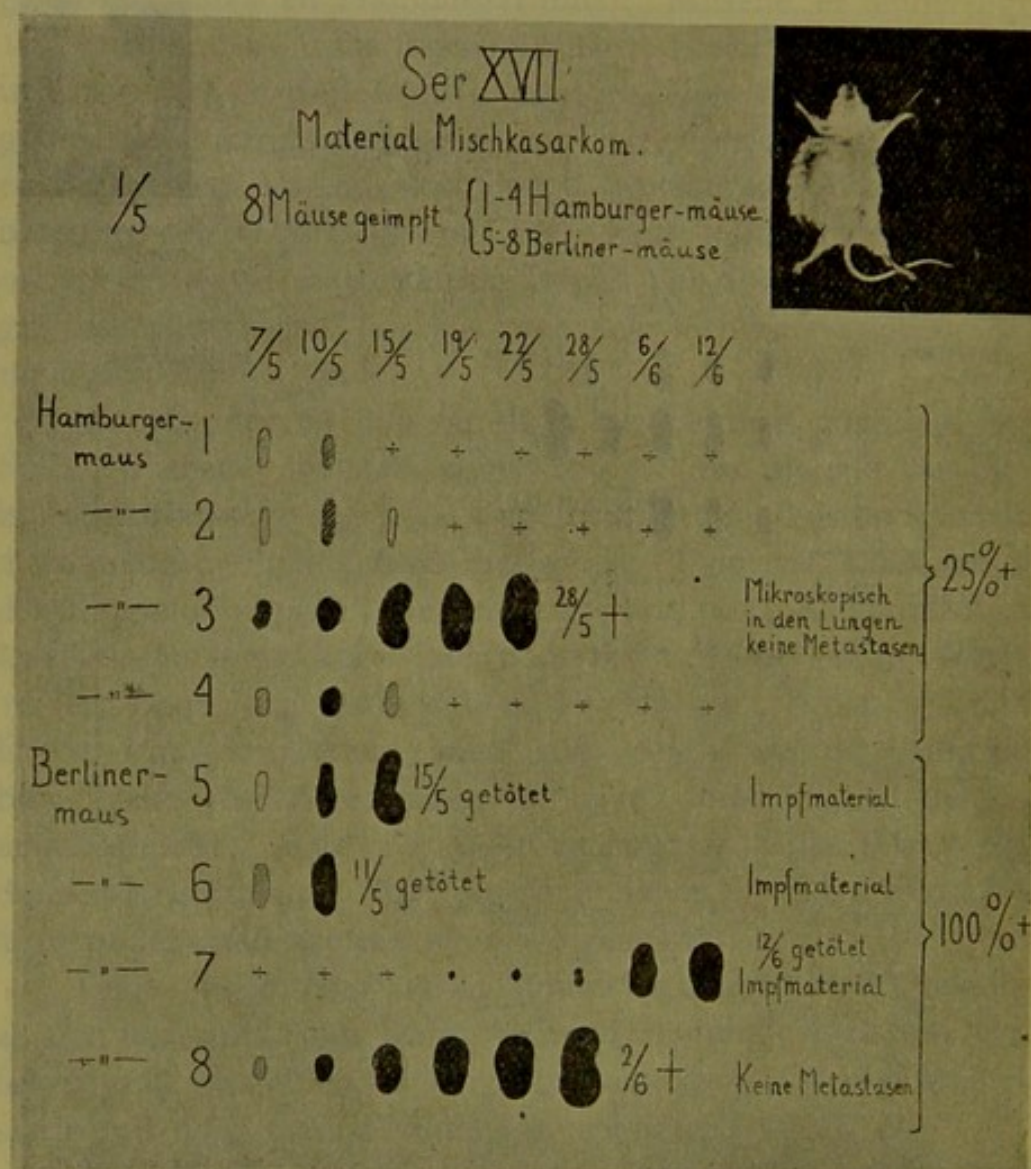 Ser XVII.
Material Mischkasarkom.
1/5 8 Mäuse geimpft { 1-4 Hamburger-mäuse
5-8 Berliner-mäuse
7/5 10/5 15/5 19/5 22/5 28/5 6/6 12/6
Hamburger-maus 1 ÷ ÷ ÷ ÷ ÷ ÷
—"— 2 ÷ ÷ ÷ ÷ ÷
—"— 3 28/5 +
Mikroskopisch
in den Lungen
keine Metastasen
—"— 4 ÷ ÷ ÷ ÷ ÷
25%+
Berliner-maus 5 15/5 getötet Impfmaterial
—"— 6 11/5 getötet Impfmaterial
—"— 7 ÷ ÷ ÷ 12/6 getötet
Impfmaterial
—"— 8 2/6 + Keine Metastasen
100%+